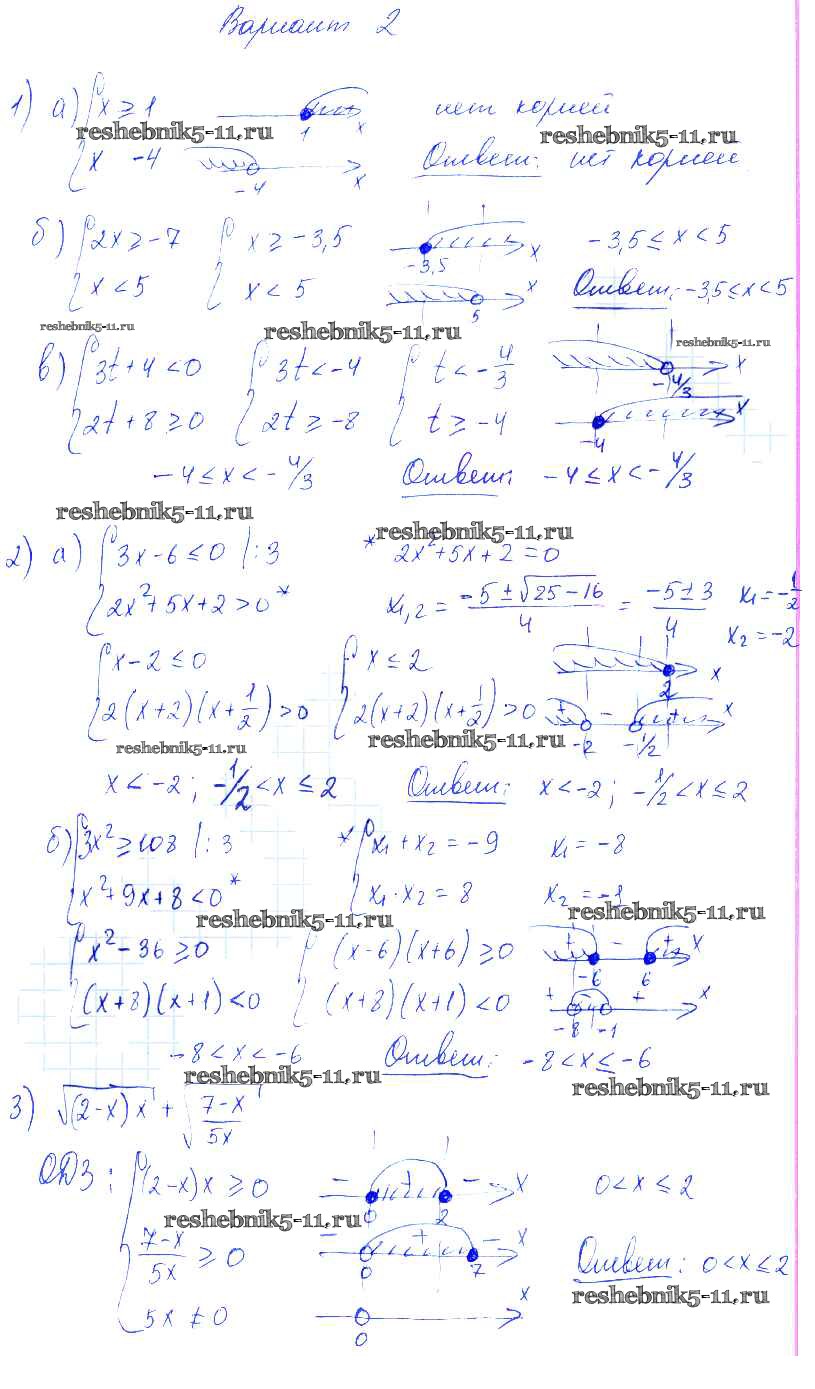 Вариант 2
1) а) { x ≥ 1   1   x   нет корней
reshebnik5-11.ru   reshebnik5-11.ru
{ x   -4   -4   x   Ответ: нет корней
б) { 2x ≥ -7   { x ≥ -3,5   -3,5   x   -3,5 ≤ x < 5
{ x < 5   { x < 5   5   x   Ответ: -3,5 ≤ x < 5
reshebnik5-11.ru   reshebnik5-11.ru   reshebnik5-11.ru
в) { 3t + 4 < 0   { 3t < -4   { t < -4/3   -4/3   x
{ 2t + 8 ≥ 0   { 2t ≥ -8   { t ≥ -4   -4   x
-4 ≤ x < -4/3   Ответ: -4 ≤ x < -4/3
reshebnik5-11.ru   reshebnik5-11.ru
2) а) { 3x - 6 ≤ 0 |:3   * 2x² + 5x + 2 = 0
{ 2x² + 5x + 2 > 0 *   x₁,₂ = (-5 ± √(25 - 16))/4 = (-5 ± 3)/4   x₁ = -1/2
x₂ = -2
{ x - 2 ≤ 0   { x ≤ 2   2   x
{ 2(x+2)(x+1/2) > 0   { 2(x+2)(x+1/2) > 0   + -2 - -1/2 +   x
reshebnik5-11.ru   reshebnik5-11.ru
x < -2; -1/2 < x ≤ 2   Ответ: x < -2; -1/2 < x ≤ 2
б) { 3x² ≥ 108 |:3   * { x₁ + x₂ = -9   x₁ = -8
{ x² + 9x + 8 < 0 *   { x₁ · x₂ = 8   x₂ = -1
reshebnik5-11.ru   reshebnik5-11.ru
{ x² - 36 ≥ 0   { (x-6)(x+6) ≥ 0   + -6 - 6 +   x
{ (x+8)(x+1) < 0   { (x+8)(x+1) < 0   + -8 -1 +   x
-8 < x < -6   Ответ: -8 < x ≤ -6
reshebnik5-11.ru   reshebnik5-11.ru
3) √((2-x)x) + √((7-x)/5x)
ОДЗ: { (2-x)x ≥ 0   - 0 + 2 -   x   0 < x ≤ 2
reshebnik5-11.ru
{ (7-x)/5x ≥ 0   - 0 + 7 -   x   Ответ: 0 < x ≤ 2
reshebnik5-11.ru
{ 5x ≠ 0   0   x